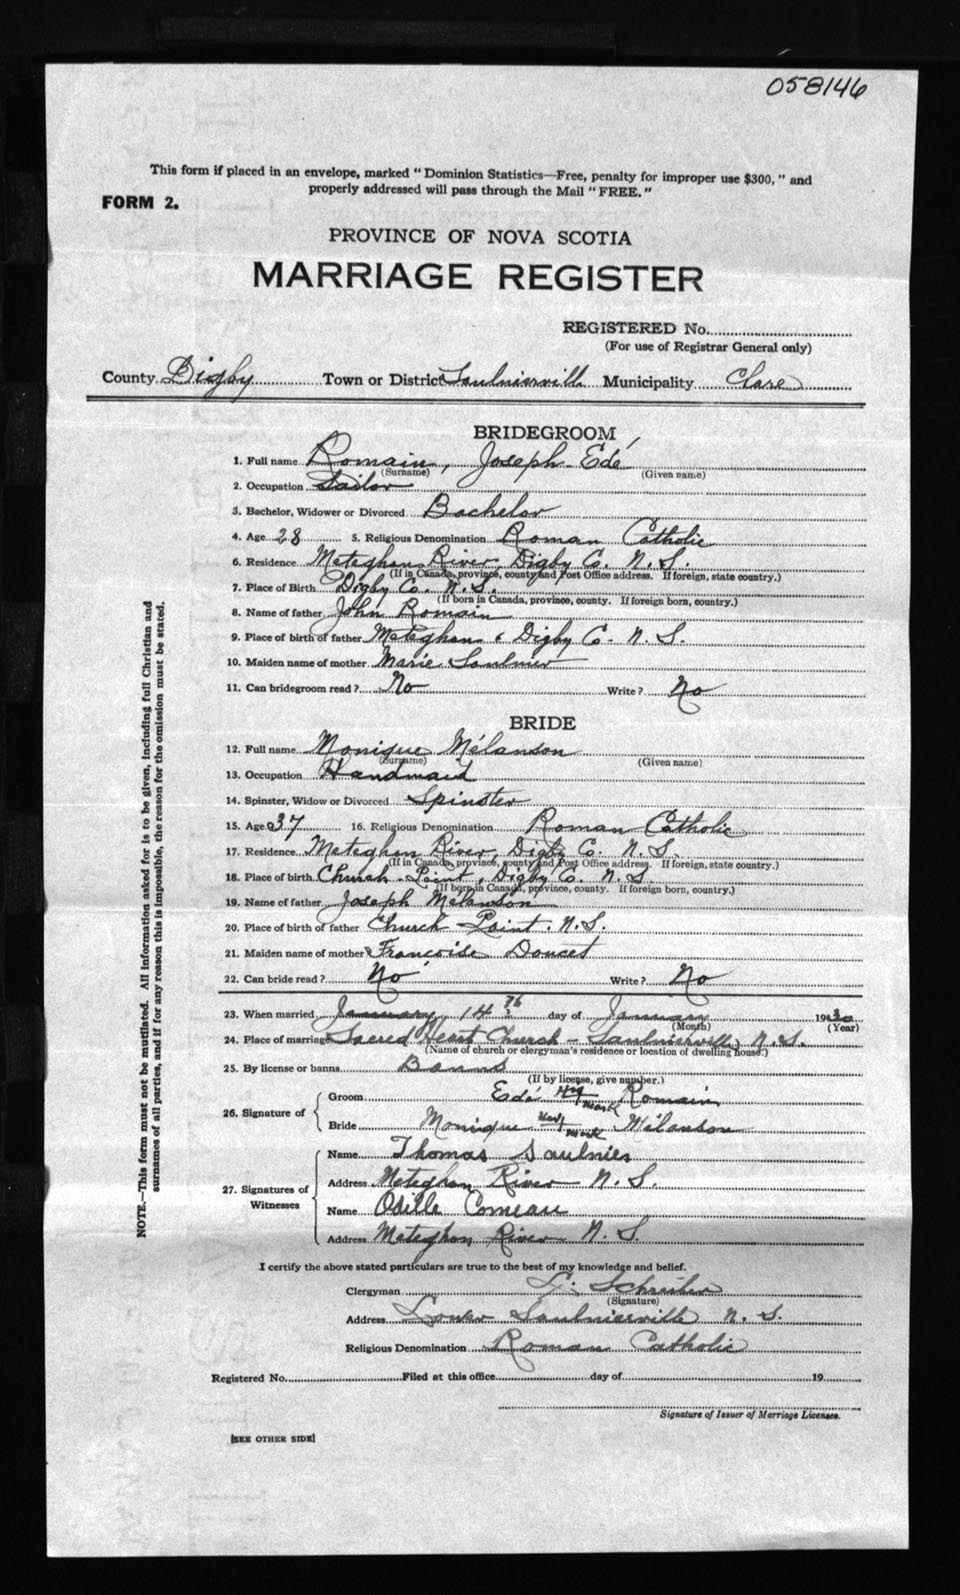 058146
This form if placed in an envelope, marked "Dominion Statistics—Free, penalty for improper use $300," and
properly addressed will pass through the Mail "FREE."
FORM 2.
PROVINCE OF NOVA SCOTIA
MARRIAGE REGISTER
REGISTERED No.
(For use of Registrar General only)
County Digby Town or District Saulnierville Municipality Clare
BRIDEGROOM
1. Full name Romain, Joseph Edé
(Surname) (Given name)
2. Occupation Sailor
3. Bachelor, Widower or Divorced Bachelor
4. Age 28 5. Religious Denomination Roman Catholic
6. Residence Meteghan River, Digby Co. N. S.
(If in Canada, province, county and Post Office address. If foreign, state country.)
7. Place of Birth Digby Co. N. S.
(If born in Canada, province, county. If foreign born, country.)
8. Name of father John Romain
9. Place of birth of father Meteghan, Digby Co. N. S.
10. Maiden name of mother Marie Saulnier
11. Can bridegroom read? No Write? No
BRIDE
12. Full name Monique Mélanson
(Surname) (Given name)
13. Occupation Handmaid
14. Spinster, Widow or Divorced Spinster
15. Age 37 16. Religious Denomination Roman Catholic
17. Residence Meteghan River, Digby Co. N. S.
(If in Canada, province, county and Post Office address. If foreign, state country.)
18. Place of birth Church Point, Digby Co. N. S.
(If born in Canada, province, county. If foreign born, country.)
19. Name of father Joseph Mélanson
20. Place of birth of father Church Point. N. S.
21. Maiden name of mother Françoise Doucet
22. Can bride read? No Write? No
23. When married January, 14th day of January 1930
(Month) (Year)
24. Place of marriage Sacred Heart Church - Saulnierville, N. S.
(Name of church or clergyman's residence or location of dwelling house.)
25. By license or banns Banns
(If by license, give number.)
26. Signature of
Groom Edé his mark Romain
Bride Monique her mark Mélanson
27. Signatures of Witnesses
Name Thomas Saulnier
Address Meteghan River N. S.
Name Odille Comeau
Address Meteghan River N. S.
I certify the above stated particulars are true to the best of my knowledge and belief.
Clergyman Schreiber
(Signature)
Address Lower Saulnierville N. S.
Religious Denomination Roman Catholic
Registered No. Filed at this office day of 19
Signature of Issuer of Marriage Licenses.
[SEE OTHER SIDE]
NOTE.—This form must not be mutilated. All information asked for is to be given, including full Christian and
surnames of all parties, and if for any reason this is impossible, the reason for the omission must be stated.